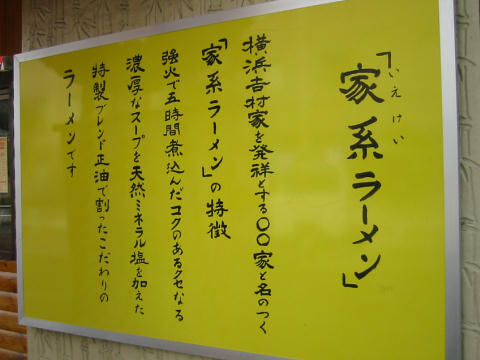 「家系ラーメン」
いえけい
横浜吉村家を発祥とする〇〇家と名のつく
「家系ラーメン」の特徴
強火で五時間煮込んだコクのあるクセなる
濃厚なスープを天然ミネラル塩を加えた
特製ブレンド正油で割ったこだわりの
ラーメンです